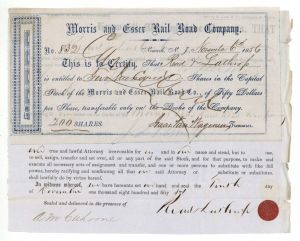 Morris and Essex Rail Road Company.
No. 532
Newark N. J. November 6 1856
This is to Certify, that
is entitled to Two hundred Shares in the Capital
Stock of the Morris and Essex Rail Road Co. of Fifty Dollars
per Share, transferable only on the Books of the Company.
200 SHARES
Treasurer.
true and lawful Attorney irrevocable for and in name and stead, but to use,
to sell, assign transfer and set over, all or any part of the said Stock, and for that purpose, to make and
execute all necessary acts of assignment and transfer, and one or more persons to substitute with like full
power, hereby ratifying and confirming all that said Attorney or substitute or substitutes
shall lawfully do by virtue hereof.
In witness whereof, have hereunto set hand and seal the Tenth day
of November one thousand eight hundred and fifty
Sealed and delivered in the presence of